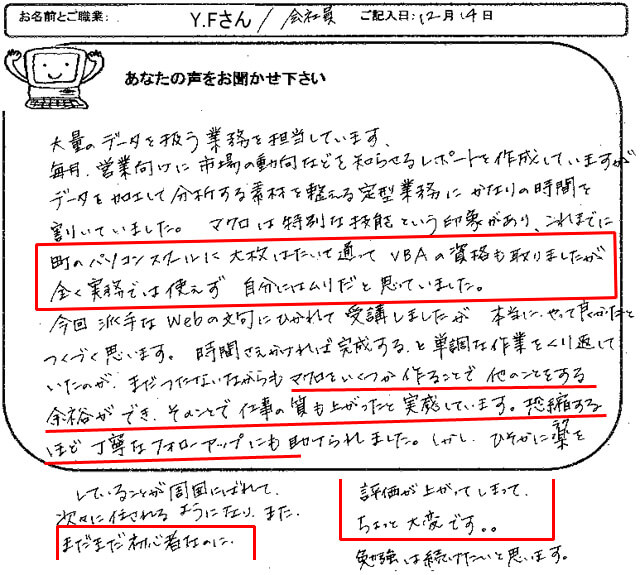 お名前とご職業： Y.Fさん／会社員 ご記入日：12月14日
あなたの声をお聞かせ下さい
大量のデータを扱う業務を担当しています、
毎月、営業向けに市場の動向などを知らせるレポートを作成していますが
データを加工して分析する素材を整える定型業務にかなりの時間を
割いていました。マクロは特別な技能という印象があり、これまでに
町のパソコンスクールに大枚はたいて通ってVBAの資格も取りましたが
全く実務では使えず 自分にはムリだと思っていました。
今回派手なWebの文句にひかれて受講しましたが 本当に、やって良かったと
つくづく思います。時間さえかければ完成する、と単調な作業をくり返して
いたのが、まだつたないながらもマクロをいくつか作ることで他のことをする
余裕ができ、そのことで仕事の質も上がったと実感しています。恐縮する
ほど丁寧なフォローアップにも助けられました。しかし、ひそかに楽を
していることが周囲にばれて、
次々に任されるようになり、また、
まだまだ初心者なのに、
評価が上がってしまって、
ちょっと大変です。。
勉強は続けたいと思います。